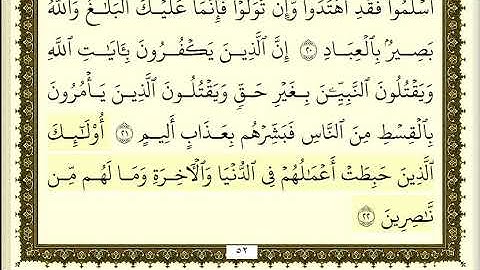 أَسْلَمُوا۟ فَقَدِ ٱهْتَدَوا۟ وَّإِن تَوَلَّوْا۟ فَإِنَّمَا عَلَيْكَ ٱلْبَلَـٰغُ وَٱللَّهُ
بَصِيرٌۢ بِٱلْعِبَادِ ﴿٢٠﴾ إِنَّ ٱلَّذِينَ يَكْفُرُونَ بِـَٔايَـٰتِ ٱللَّهِ
وَيَقْتُلُونَ ٱلنَّبِيِّـۧنَ بِغَيْرِ حَقٍّ وَيَقْتُلُونَ ٱلَّذِينَ يَأْمُرُونَ
بِٱلْقِسْطِ مِنَ ٱلنَّاسِ فَبَشِّرْهُم بِعَذَابٍ أَلِيمٍ ﴿٢١﴾ أُو۟لَـٰٓئِكَ
ٱلَّذِينَ حَبِطَتْ أَعْمَـٰلُهُمْ فِى ٱلدُّنْيَا وَٱلْـَٔاخِرَةِ وَمَا لَهُم مِّن
نَّـٰصِرِينَ ﴿٢٢﴾
٥٢